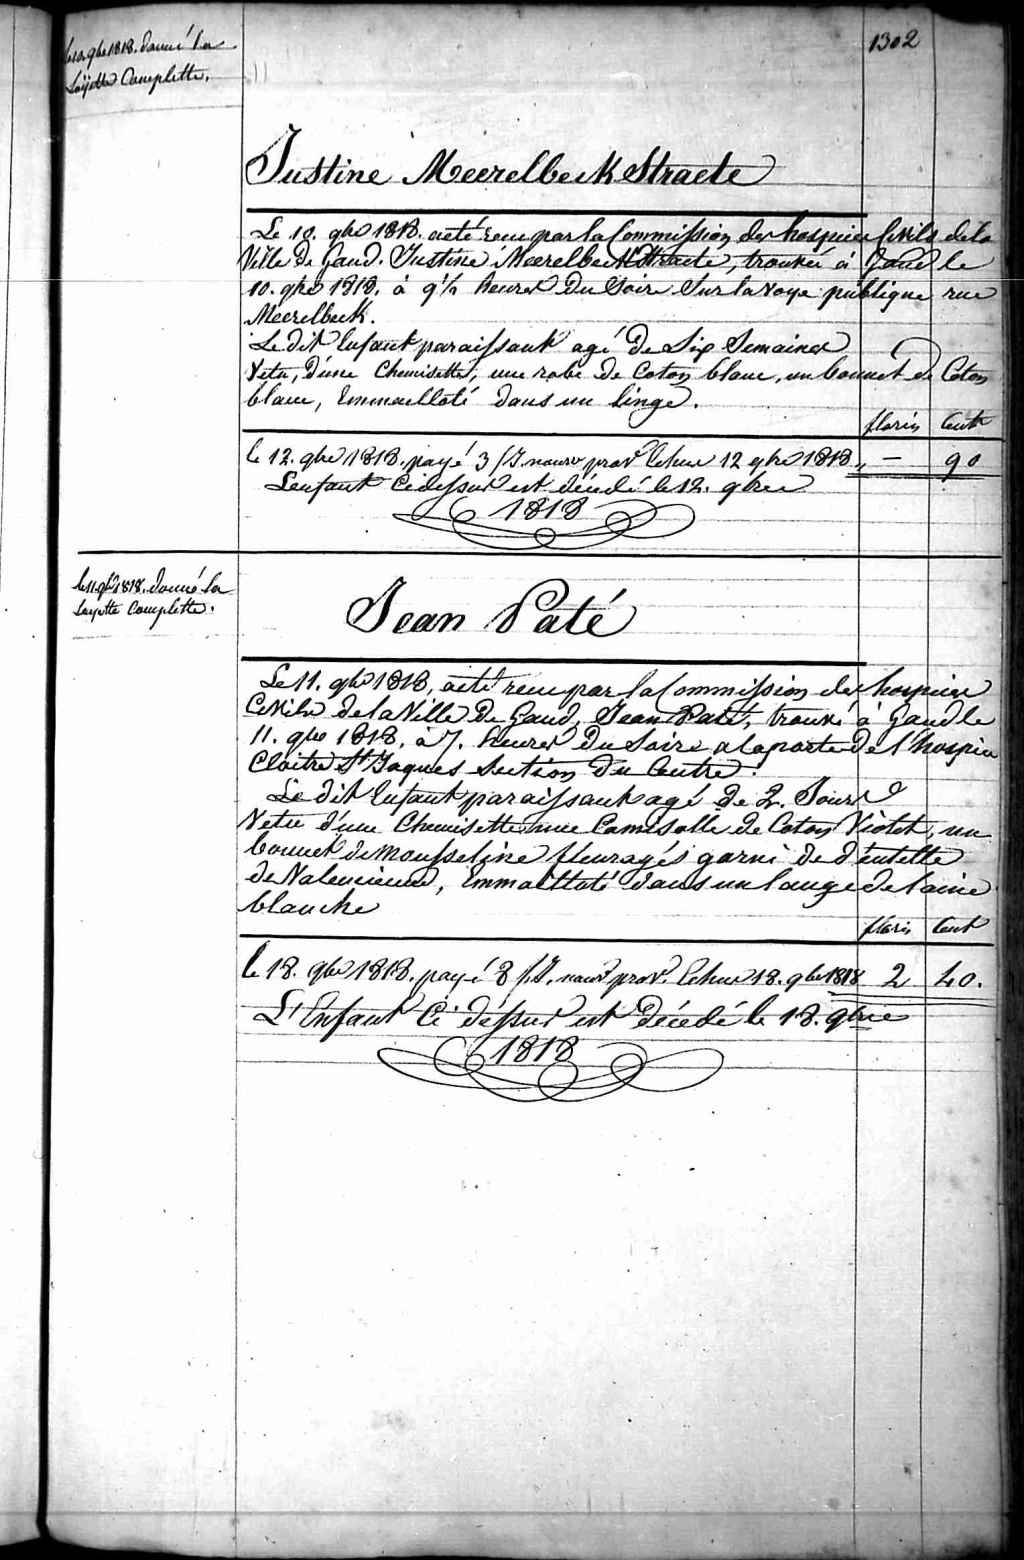 1302
le 10 gbre 1818. donné la
Layette Complette.
Justine MeerelbeckStraete
Le 10. gbre 1818. aeté reçu par la Commission des hospices Civils de la
Ville de Gand. Justine MeerelbeckStraete, trouvée à Gand le
10. gbre 1818. à 9½ heures du Soire Sur la voye publique rue
Meerelbeck.
Le dit Enfant paraissant agé de Six Semaines
Vetu, d'une Chemisette, une robe de Coton blanc, un bonnet de Coton
blanc, Emmailloté dans un linge.
florin Cents
le 12. gbre 1818. payé 3 /J. nourr prov. Echue 12 gbre 1818 „ — 90
L'enfant Cidessus est décédé le 12. gbre
1818
le 11. gbre 1818. donné la
Layette Complette.
Jean Paté
Le 11. gbre 1818, aeté reçu par la Commission des hospices
Civils de la Ville de Gand, Jean Paté, trouvé à Gand le
11. gbre 1818. à 7. heures du Soire a la porte de l'hospice
Cloitre St Jaques Section du Centre.
Le dit Enfant paraissant agé de 2. Jours
Vetu d'une Chemisette une Camisolle de Coton Violet, un
bonnet de Mousseline fleuragés garni de d'entelle
de Valencienne, Emmailloté dans un lange de laine
blanche
floris Cent
le 18. gbre 1818. payé 8 /J. nourr prov. Echue 18. gbre 1818 2 40.
L'Enfant Ci déssus est Décédé le 18. gbre
1818